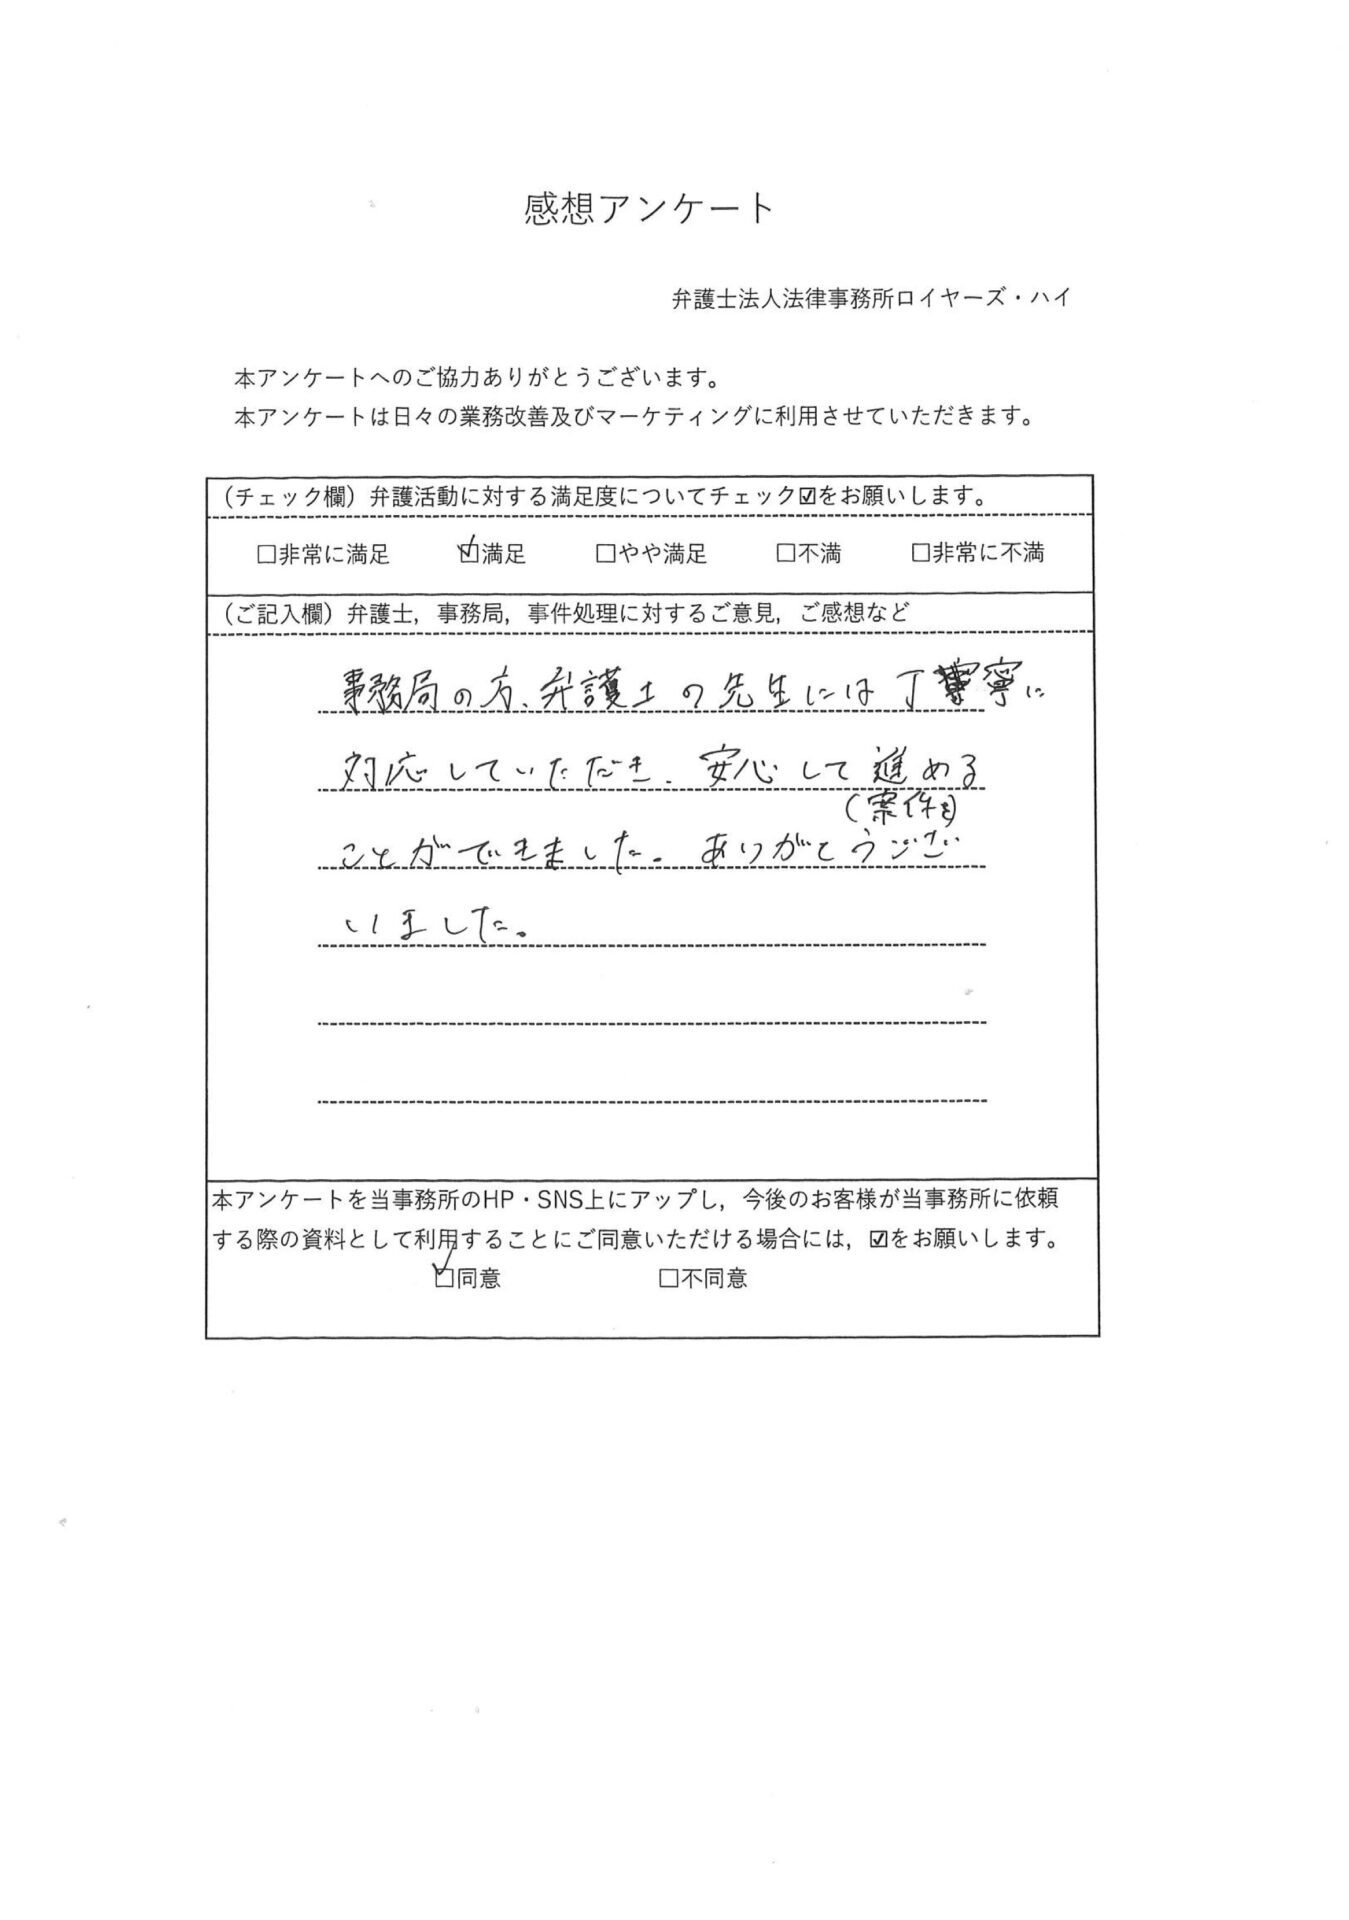 感想アンケート
弁護士法人法律事務所ロイヤーズ・ハイ
本アンケートへのご協力ありがとうございます。
本アンケートは日々の業務改善及びマーケティングに利用させていただきます。
（チェック欄）弁護活動に対する満足度についてチェック☑をお願いします。
□非常に満足 ☑満足 □やや満足 □不満 □非常に不満
（ご記入欄）弁護士，事務局，事件処理に対するご意見，ご感想など
事務局の方、弁護士の先生には丁寧に
対応していただき、安心して進める
（案件を）
ことができました。ありがとうござ
いました。
本アンケートを当事務所のHP・SNS上にアップし，今後のお客様が当事務所に依頼
する際の資料として利用することにご同意いただける場合には，☑をお願いします。
☑同意 □不同意